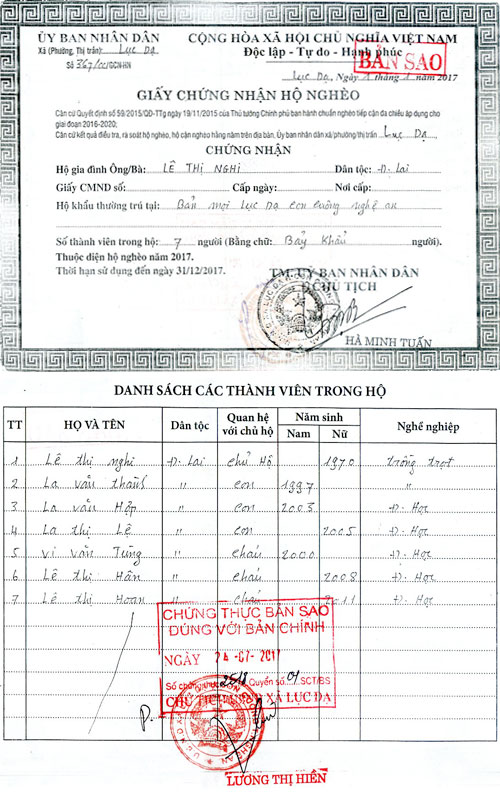 ỦY BAN NHÂN DÂN
Xã (Phường, Thị trấn) Lục Dạ
Số 367/CC/GCN-HN
CỘNG HÒA XÃ HỘI CHỦ NGHĨA VIỆT NAM
Độc lập - Tự do - Hạnh phúc
BẢN SAO
Lục Dạ, Ngày 1 tháng 1 năm 2017
GIẤY CHỨNG NHẬN HỘ NGHÈO
Căn cứ Quyết định số 59/2015/QĐ-TTg ngày 19/11/2015 của Thủ tướng Chính phủ ban hành chuẩn nghèo tiếp cận đa chiều áp dụng cho
giai đoạn 2016-2020;
Căn cứ kết quả điều tra, rà soát hộ nghèo, hộ cận nghèo hàng năm trên địa bàn, Ủy ban nhân dân xã/phường/thị trấn Lục Dạ
CHỨNG NHẬN
Hộ gia đình Ông/Bà: LÊ THỊ NGHI Dân tộc: Đ. Lai
Giấy CMND số: Cấp ngày: Nơi cấp:
Hộ khẩu thường trú tại: Bản mọi Lục Dạ con cuông nghệ an
Số thành viên trong hộ: 7 người (Bằng chữ: Bảy Khẩu người).
Thuộc diện hộ nghèo năm 2017.
Thời hạn sử dụng đến ngày 31/12/2017.
TM. ỦY BAN NHÂN DÂN
CHỦ TỊCH
HÀ MINH TUẤN
DANH SÁCH CÁC THÀNH VIÊN TRONG HỘ
TT HỌ VÀ TÊN Dân tộc Quan hệ với chủ hộ Năm sinh Nam Nữ Nghề nghiệp
1 Lê thị nghi Đ. Lai chủ hộ 1970 trồng trọt
2 La văn thành " con 1997 "
3 La văn Hợp " con 2003 Đ. Học
4 La thị Lệ " con 2005 Đ. Học
5 Vi văn Tùng " cháu 2000 Đ. Học
6 Lê thị Hân " cháu 2008 Đ. Học
7 Lê thị Hoan " cháu 2011 Đ. Học
CHỨNG THỰC BẢN SAO
ĐÚNG VỚI BẢN CHÍNH
NGÀY 24-07-2017
Quyển số 01 SCT/BS
XÃ LỤC DẠ
P.
LƯƠNG THỊ HIỀN